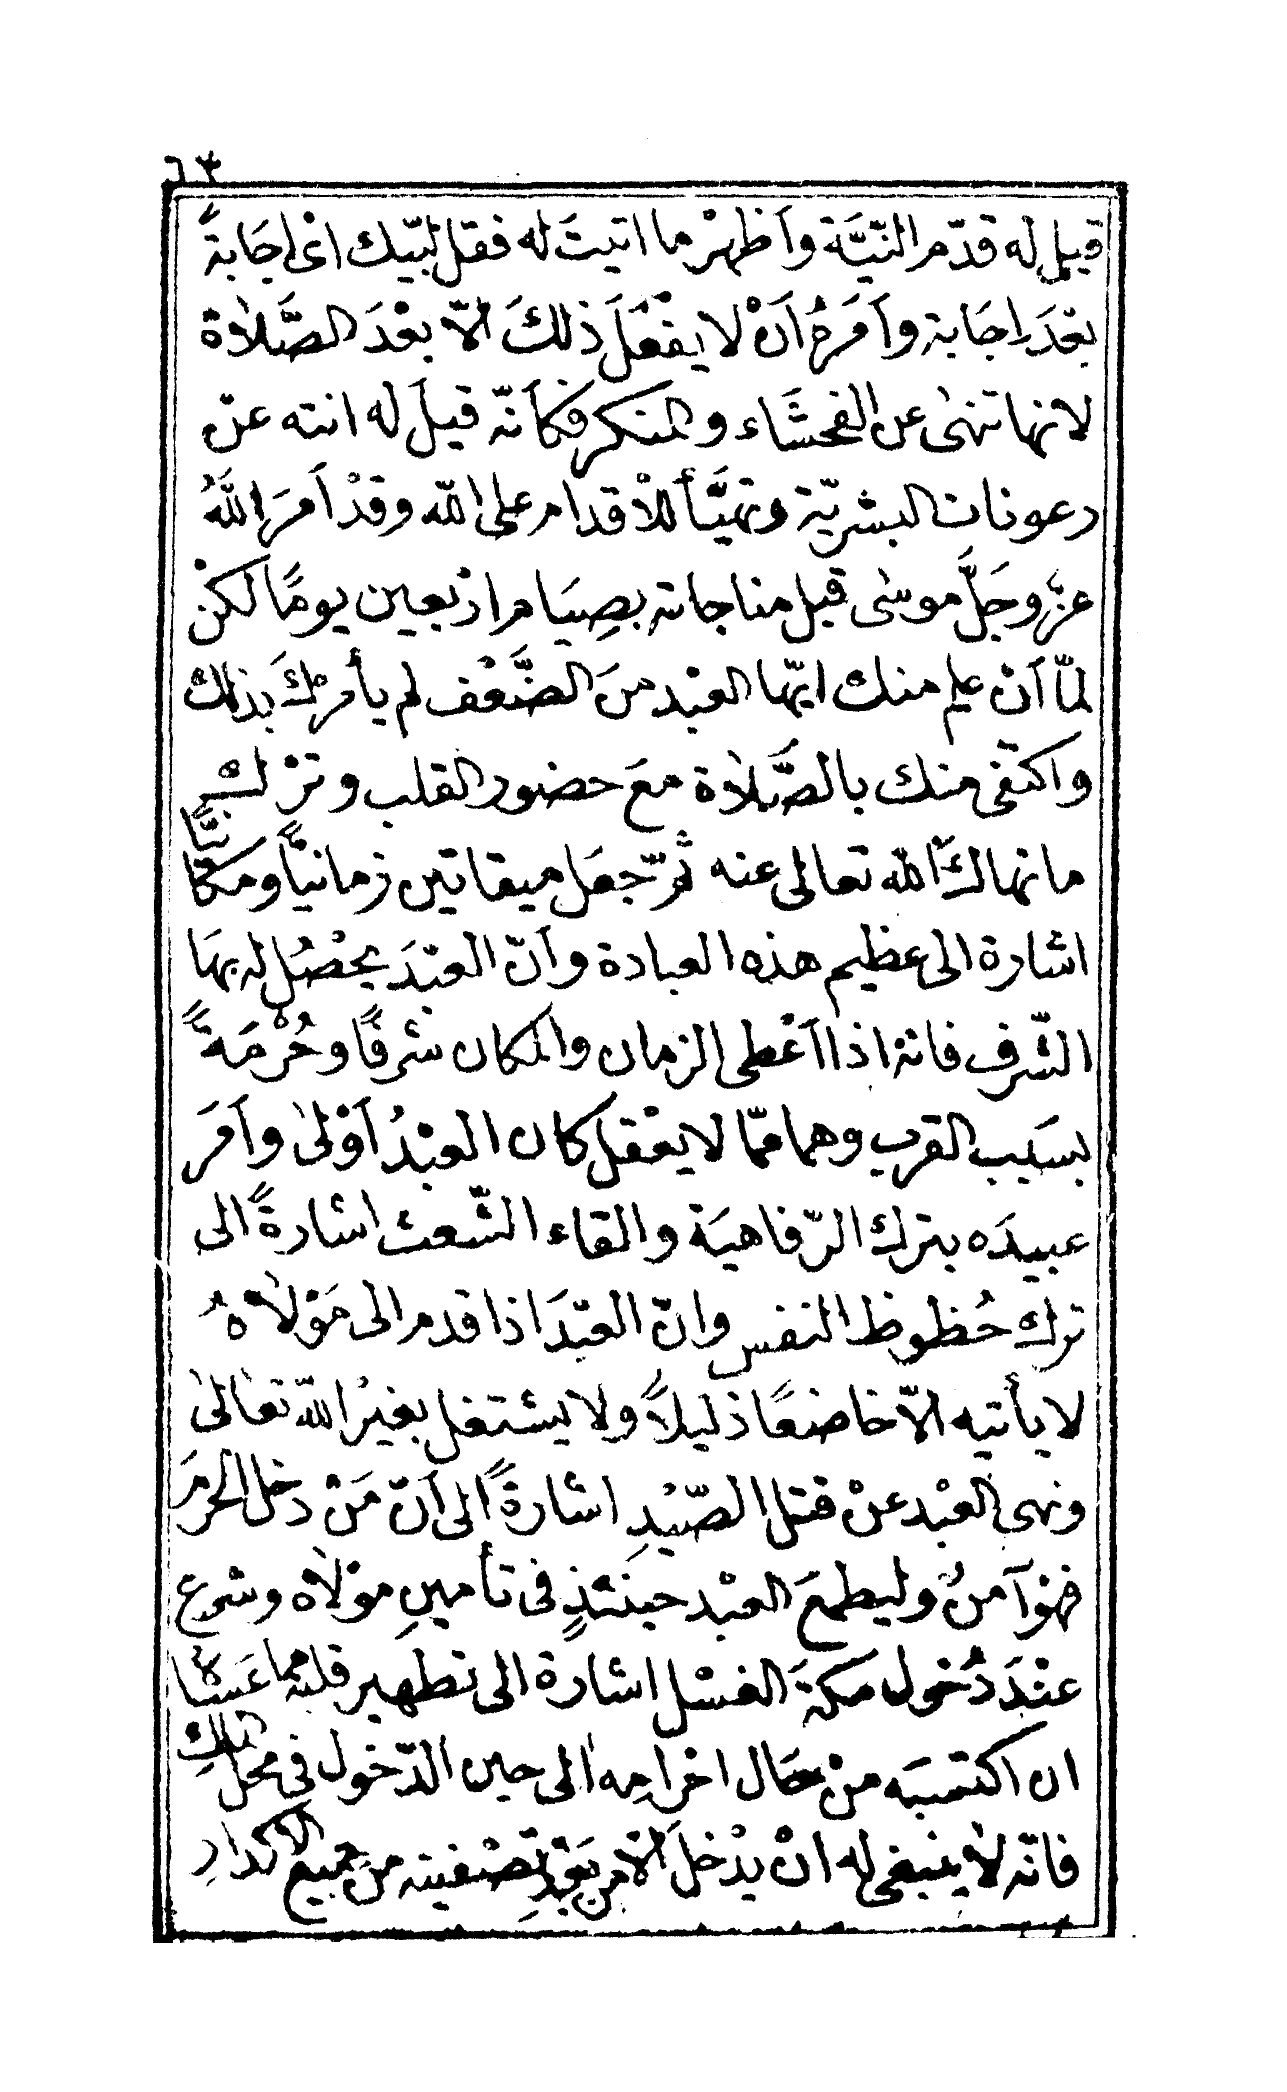 ٦٣
قيل له قدّم النّيَّة وأظهرْ ما اتيتَ له فقل لبّيك اىْ اجَابةً
بعْدَ اجَابة وأمَرهُ أنْ لا يفْعَلَ ذلكَ الّا بعْدَ الصَّلاة
لانها تنهىٰ عن الفحشَاء والمنكر فكأنّه قيلَ له انته عن
رعونات البشريّة وتهيَّأ للاْقدام على اللّه وقدْ أمَرَ اللّهُ
عزّ وجَلَّ موسٰى قبل مناجاته بصِيَام ارْبعين يومًا لكنْ
لمّا أنْ علم منك ايّها العبْد منَ الضَّعْف لم يأمرْكَ بذلك
واكتفى منك بالصَّلاة معَ حضور القلب وترْك
ما نهاكَ اللّه تعالى عنه ثمّ جعَل ميقاتين زمانيًّا ومكانيًّا
اشارة الى عظيم هذه العبادة وأنّ العبْدَ يحْصُل له بهَا
الشّرف فانهْ اذا أعْطى الزمان والمكان شرفًا وحُرْمَةً
بسَبب القرب وهما ممّا لا يعْقل كان العبْدُ أوْلىٰ وأمَر
عبيدَه بترك الرّفاهيَة والقاء الشّعث اشارةً الى
ترك حُظوظ النفس وانّ العبْدَ اذا قدم الى مَوْلاهُ
لا يأتيه الّا خاضعًا ذليلًا ولا يشتغل بغيْر اللّه تعالىٰ
ونهى العبْد عنْ قتل الصّيْدِ اشارةً الى أنّ مَنْ دخل الحرمَ
فهوْ آمنٌ وليطمعَ العبْد حينَئذٍ فى تأمينِ موْلاه وشرع
عنْدَ دُخول مكةَ الغسْل اشارة الى تطهير قلبه ممّا عَسَاهُ
ان اكتسَبه منْ حَال احْرامِه الى حين الدّخول فى محل الملك
فانّه لا ينبغى له انْ يدْخلَ الّا من بعْدِ تصْفيته من جميع الاكدارِ